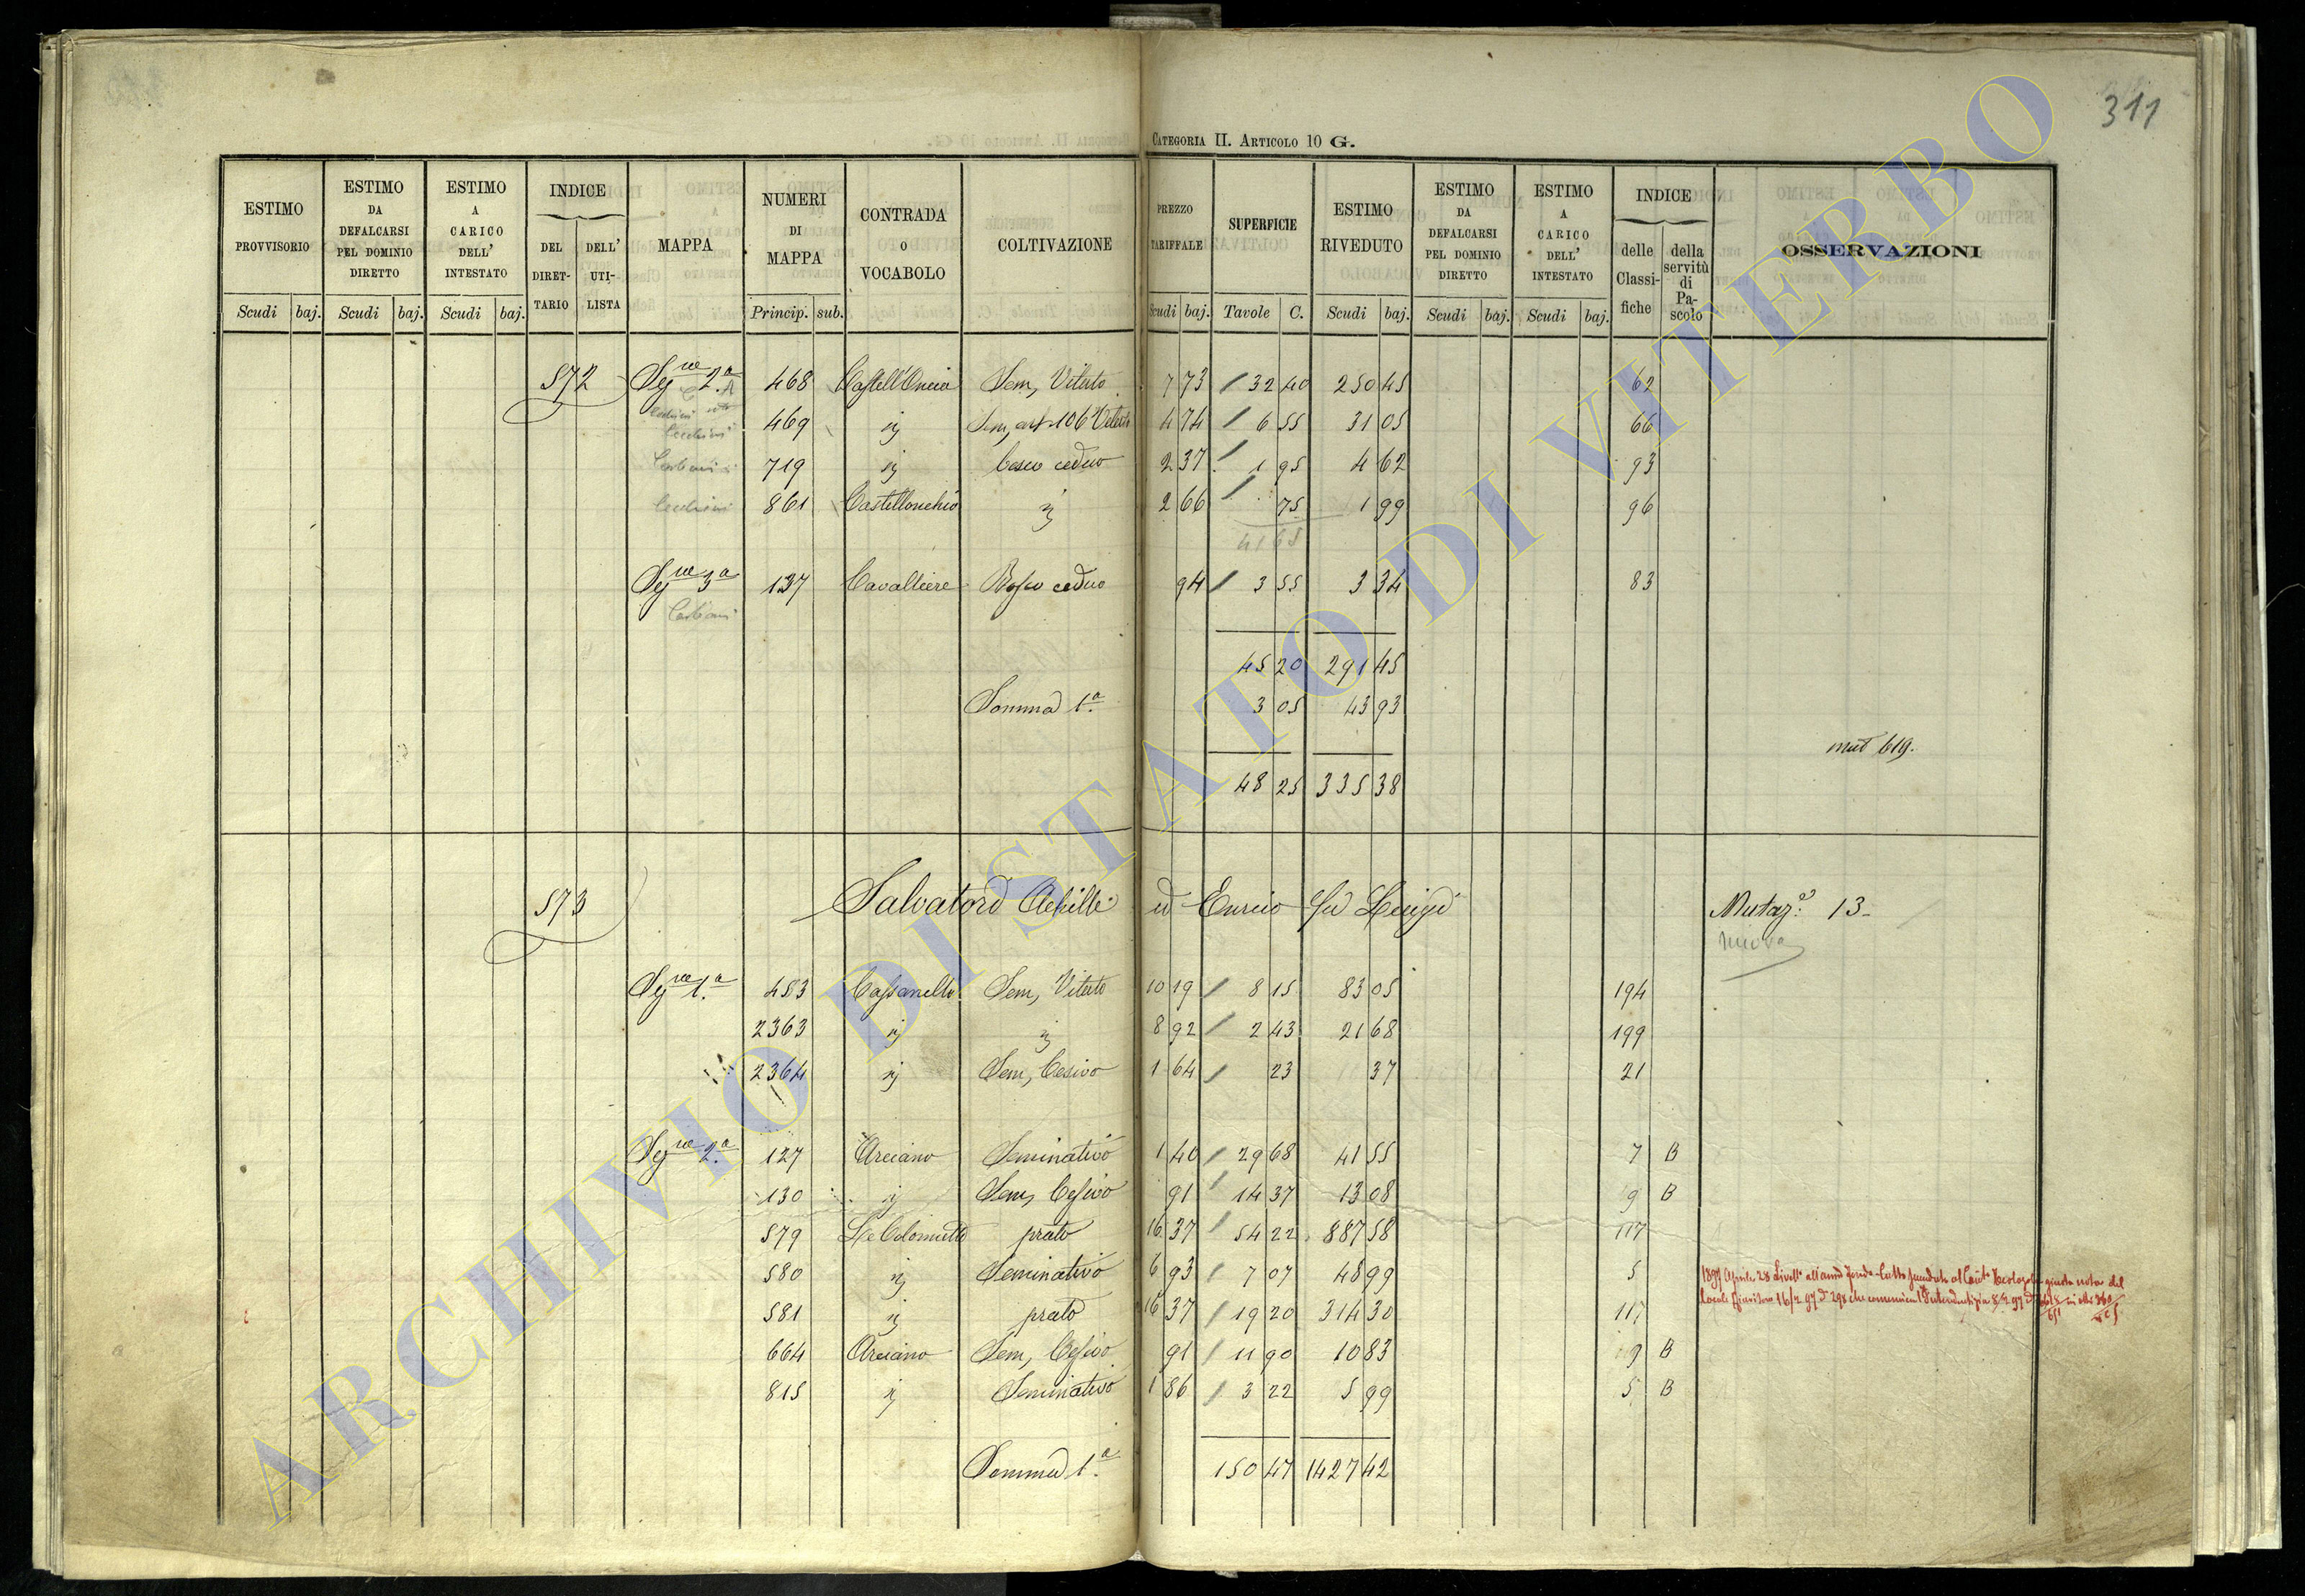 311
CATEGORIA II. ARTICOLO 10 G.
ESTIMO PROVVISORIO Scudi baj.
ESTIMO DA DEFALCARSI PEL DOMINIO DIRETTO Scudi baj.
ESTIMO A CARICO DELL' INTESTATO Scudi baj.
INDICE DEL DIRETTARIO DELL' UTILISTA
MAPPA
NUMERI DI MAPPA Princip. sub.
CONTRADA O VOCABOLO
COLTIVAZIONE
PREZZO TARIFFALE Scudi baj.
SUPERFICIE Tavole C.
ESTIMO RIVEDUTO Scudi baj.
ESTIMO DA DEFALCARSI PEL DOMINIO DIRETTO Scudi baj.
ESTIMO A CARICO DELL' INTESTATO Scudi baj.
INDICE delle Classifiche della servitù di Pascolo
OSSERVAZIONI
572 Segne 2.a 468 Sem, Vitato 7 73 32 40 250 45 62
469 Sem, art 106 Vitato 4 74 6 55 31 05 66
719 Bosco ceduo 2 37 1 95 4 62 93
861 Castellonchio 2 66 75 1 99 96
41 65
Segne 3a 137 Cavalliere Bosco ceduo 94 3 55 3 34 83
45 20 291 45
Somma 1.a 3 05 43 93
mut 619.
48 25 335 38
573 Salvatori Achille ed Eurcio fu Luigi Mutaz.e 13
nuova
Segne 1.a 483 Cassanello Sem, Vitato 10 19 8 15 83 05 194
2363 8 92 2 43 21 68 199
2364 Sem, Cesivo 1 64 23 37 21
Segne 2.a 127 Arciano Seminativo 1 40 29 68 41 55 7 B
130 Sem, Cesivo 91 14 37 13 08 9 B
579 prato 16 37 54 22 887 58 117
580 Seminativo 6 93 7 07 48 99 5
581 prato 16 37 19 20 314 30 117
664 Arciano Sem, Cesivo 91 11 90 10 83 9 B
815 Seminativo 1 86 3 22 5 99 5 B
Somma 1.a 150 47 1427 42
ARCHIVIO DI STATO DI VITERBO